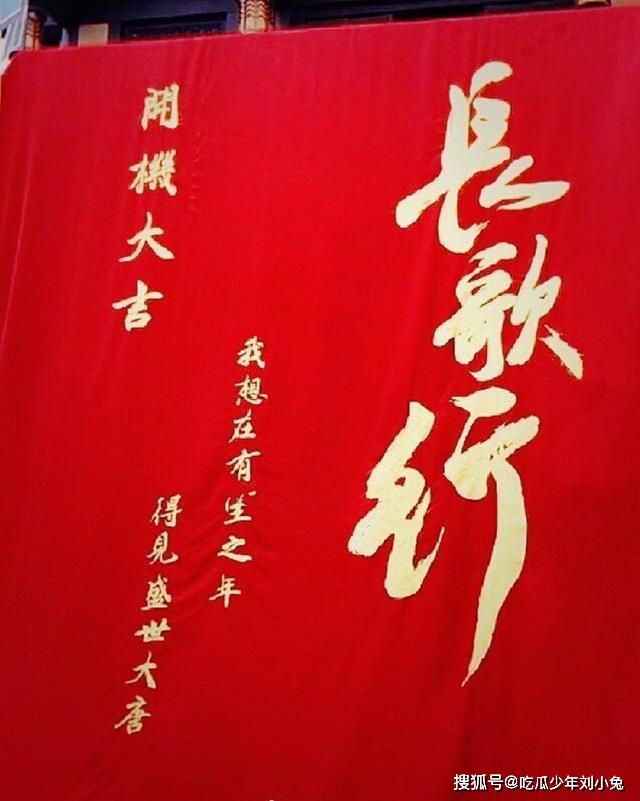 長歌行
我想在有生之年
得見盛世大唐
開機大吉
搜狐号@吃瓜少年刘小兔